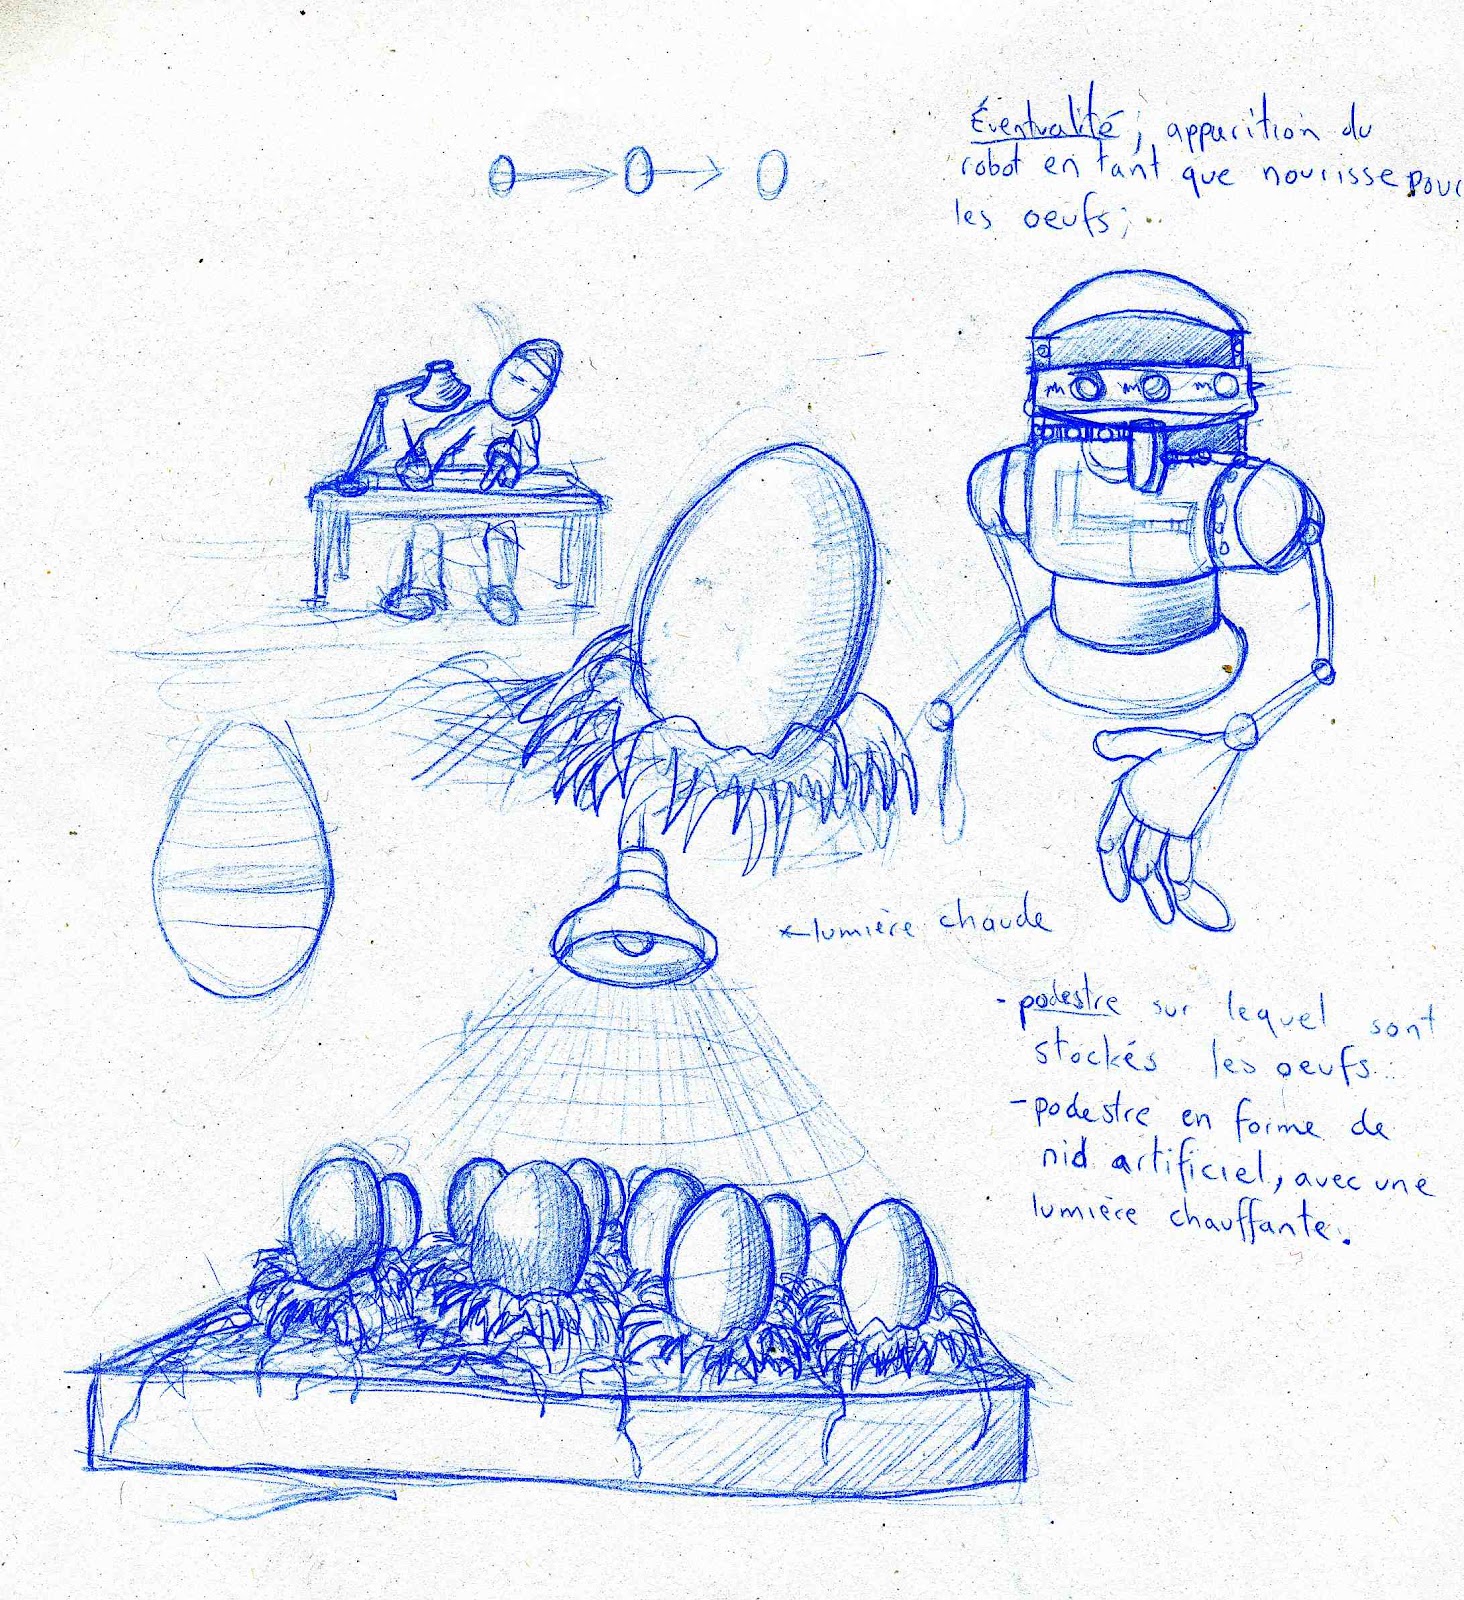 Éventualité; apparition du
robot en tant que nourisse pour
les oeufs;
lumière chaude
- podestre sur lequel sont
stockés les oeufs..
- podestre en forme de
nid artificiel, avec une
lumière chauffante.